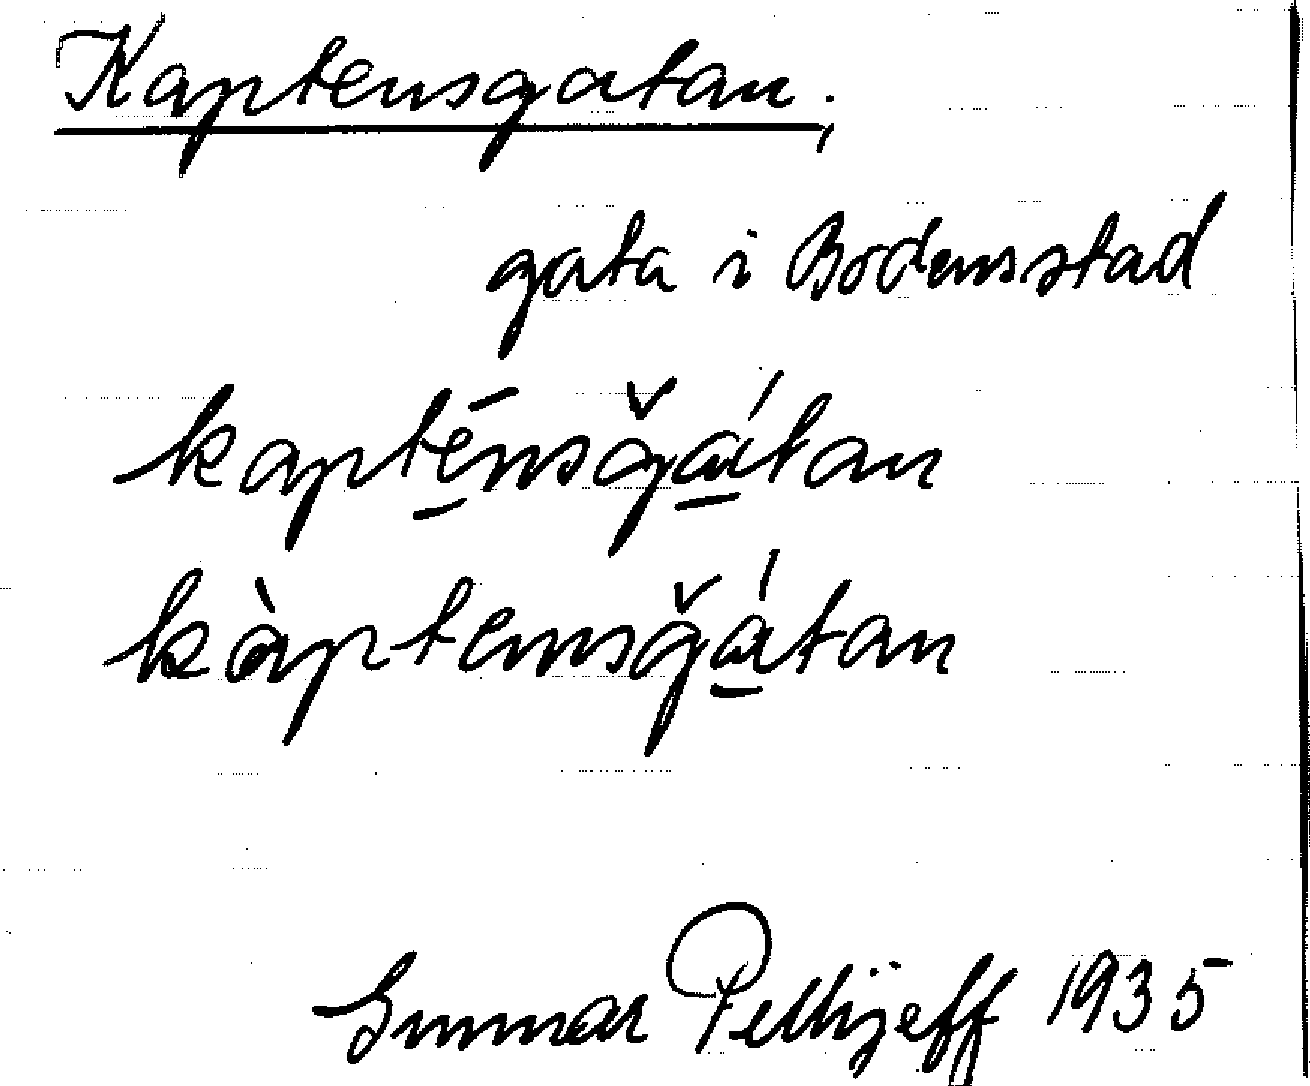 Kaptensgatan.,
gata i Bodens stad
kapténsgátan
kàptensgátan
Gunnar Pellijeff 1935